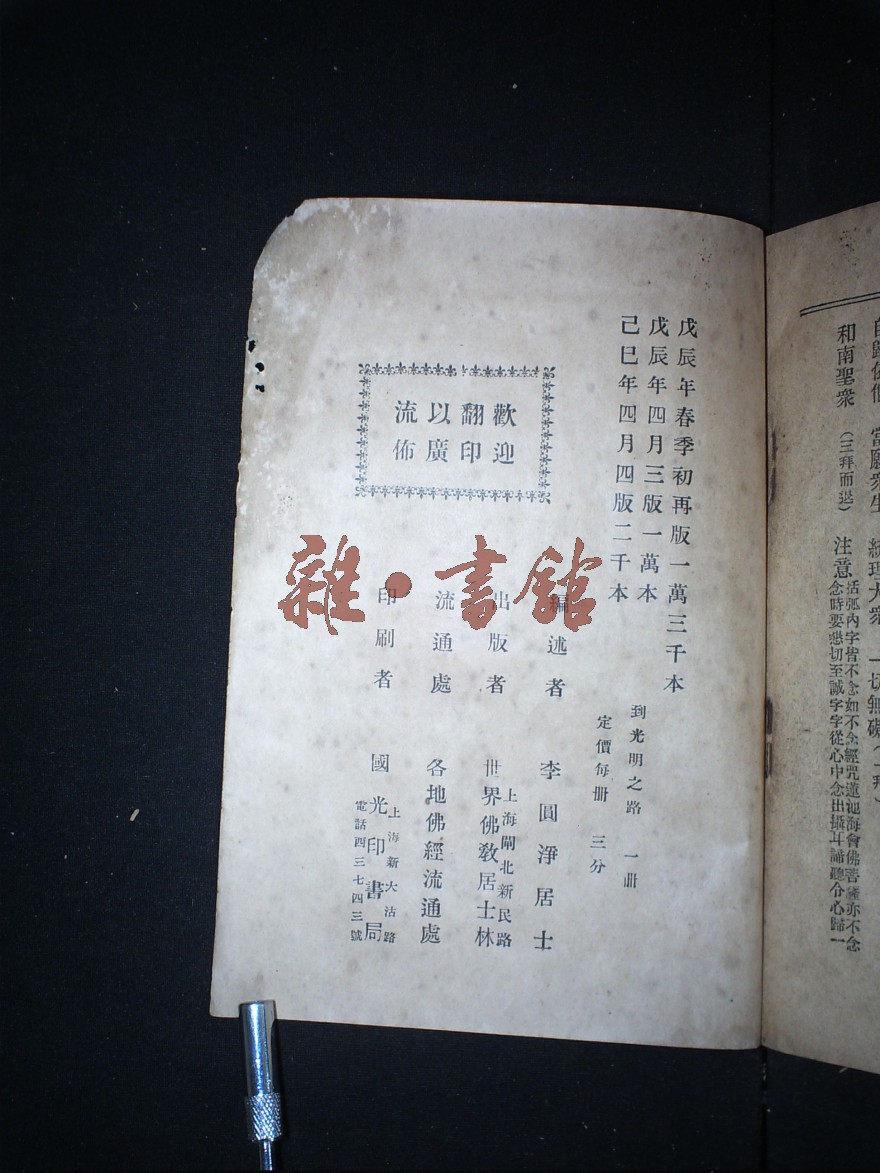 和南聖衆 (三拜而退) 注意 括弧內字皆不念如不念經咒蓮池海會佛菩薩亦不念
念時要懇切至誠字字從心中念出攝耳諦聽令心歸一
戊辰年春季初再版一萬三千本
戊辰年四月三版一萬本
己巳年四月四版二千本
到光明之路 一册
定價每册 三分
歡迎
翻印
以廣
流佈
編述者 李圓淨居士
出版者 上海閘北新民路
世界佛敎居士林
流通處 各地佛經流通處
印刷者 上海新大沽路
國光印書局
電話四三七四三號
雜·書館